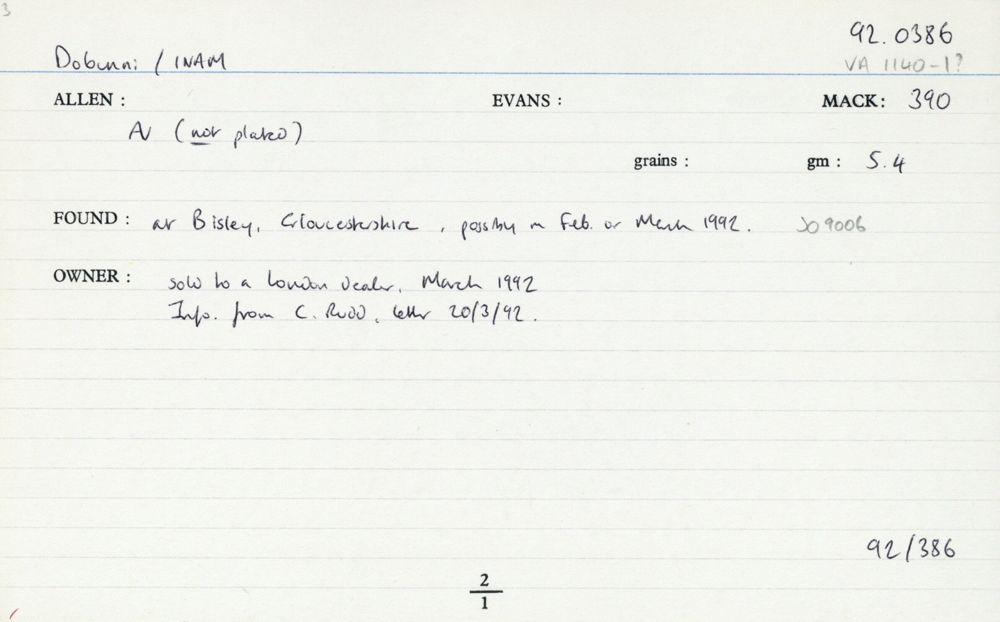 3
92.0386
Dobunni / INAM
VA 1140-1?
ALLEN : EVANS : MACK: 390
AV (not plated)
grains : gm : 5.4
FOUND : at Bisley, Gloucestershire, possibly in Feb. or March 1992. SO 9006
OWNER : sold to a London dealer, March 1992
Info. from C. Rudd, letter 20/3/92.
92/386
2
1